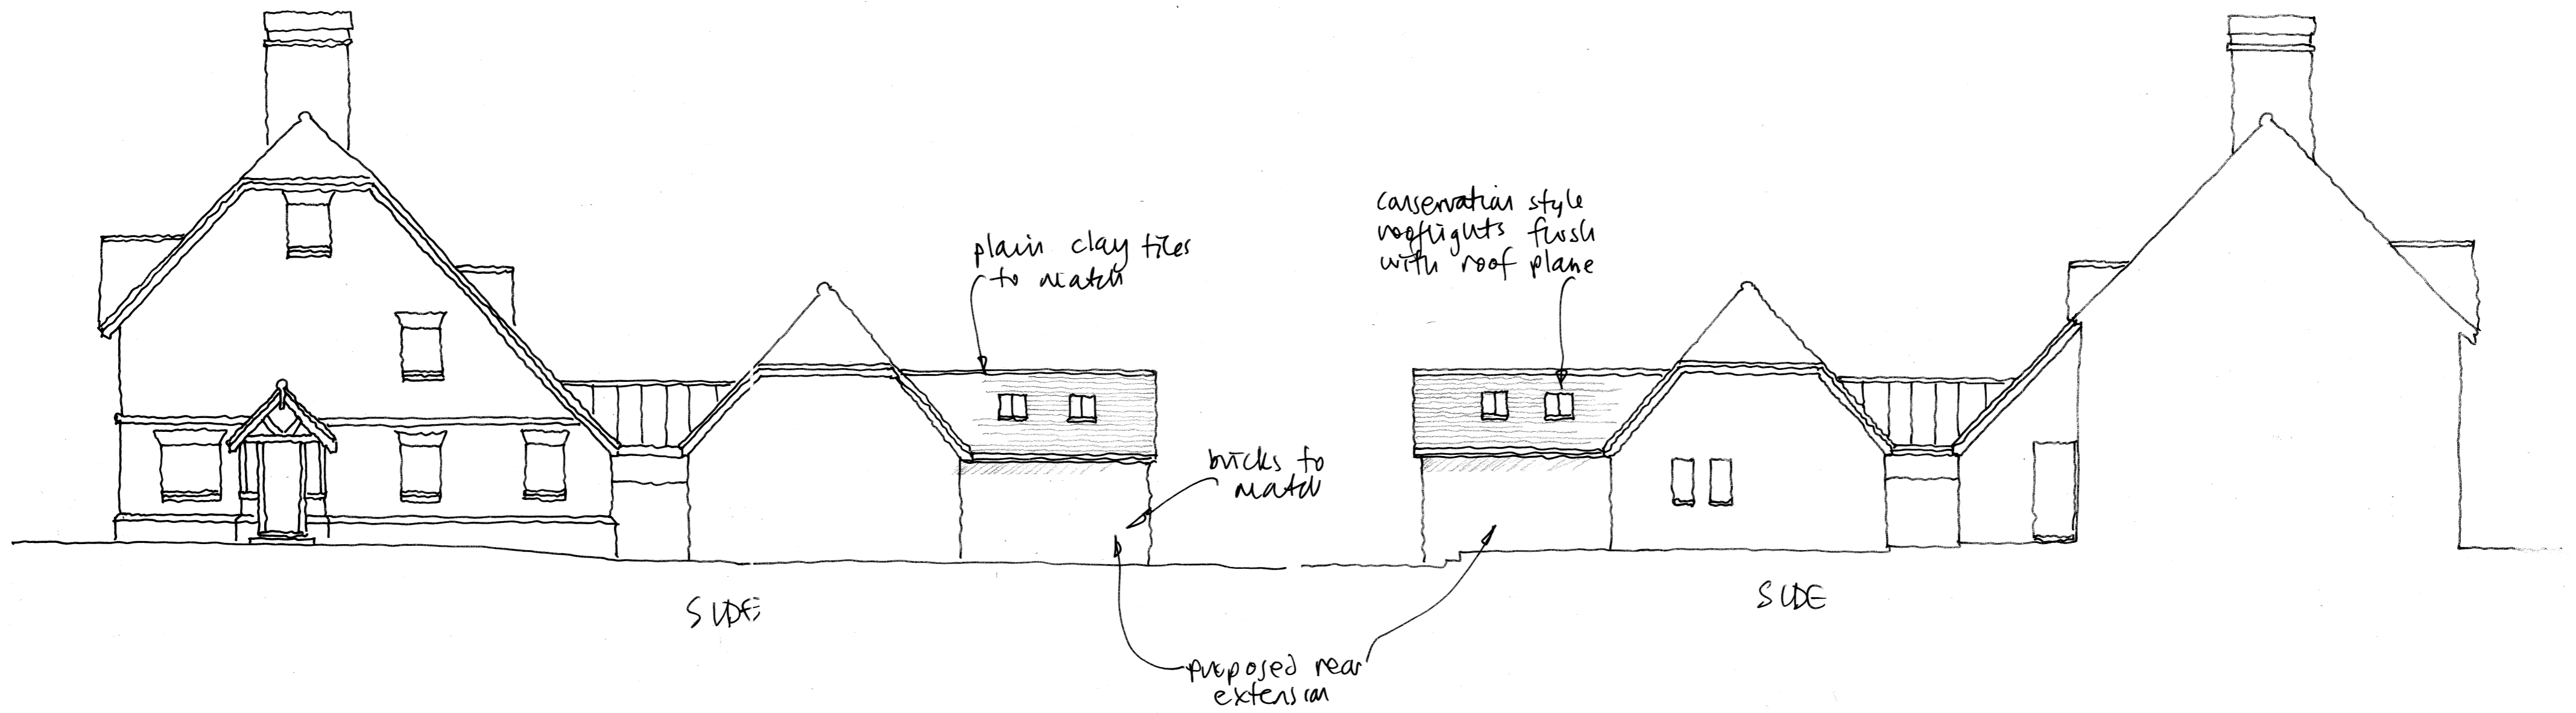 plain clay tiles
to match
conservation style
rooflights flush
with roof plane
bricks to
match
SIDE
SIDE
proposed rear
extension